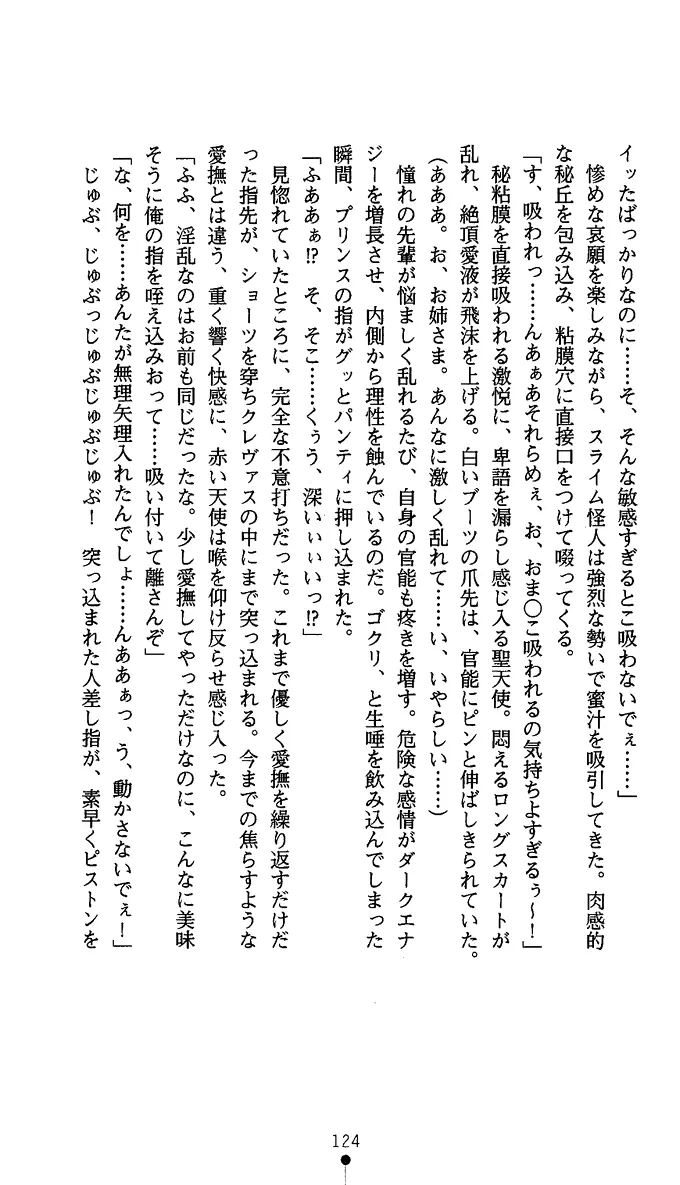 イッたばっかりなのに……そ、そんな敏感すぎるとこ吸わないでぇ……」
惨めな哀願を楽しみながら、スライム怪人は強烈な勢いで蜜汁を吸引してきた。肉感的
な秘丘を包み込み、粘膜穴に直接口をつけて啜ってくる。
「す、吸われっ……んあぁあそれらめぇ、お、おま○こ吸われるの気持ちよすぎるぅ～！」
秘粘膜を直接吸われる激悦に、卑語を漏らし感じ入る聖天使。悶えるロングスカートが
乱れ、絶頂愛液が飛沫を上げる。白いブーツの爪先は、官能にピンと伸ばしきられていた。
(あああ。お、お姉さま。あんなに激しく乱れて……い、いやらしい……)
憧れの先輩が悩ましく乱れるたび、自身の官能も疼きを増す。危険な感情がダークエナ
ジーを増長させ、内側から理性を蝕んでいるのだ。ゴクリ、と生唾を飲み込んでしまった
瞬間、プリンスの指がグッとパンティに押し込まれた。
「ふああぁ!?　そ、そこ……くぅう、深いぃぃいっ!?」
見惚れていたところに、完全な不意打ちだった。これまで優しく愛撫を繰り返すだけだ
った指先が、ショーツを穿ちクレヴァスの中にまで突っ込まれる。今までの焦らすような
愛撫とは違う、重く響く快感に、赤い天使は喉を仰け反らせ感じ入った。
「ふふ、淫乱なのはお前も同じだったな。少し愛撫してやっただけなのに、こんなに美味
そうに俺の指を咥え込みおって……吸い付いて離さんぞ」
「な、何を……あんたが無理矢理入れたんでしょ……んああぁっ、う、動かさないでぇ！」
じゅぷ、じゅぷっじゅぷじゅぷじゅぷ！　突っ込まれた人差し指が、素早くピストンを
124